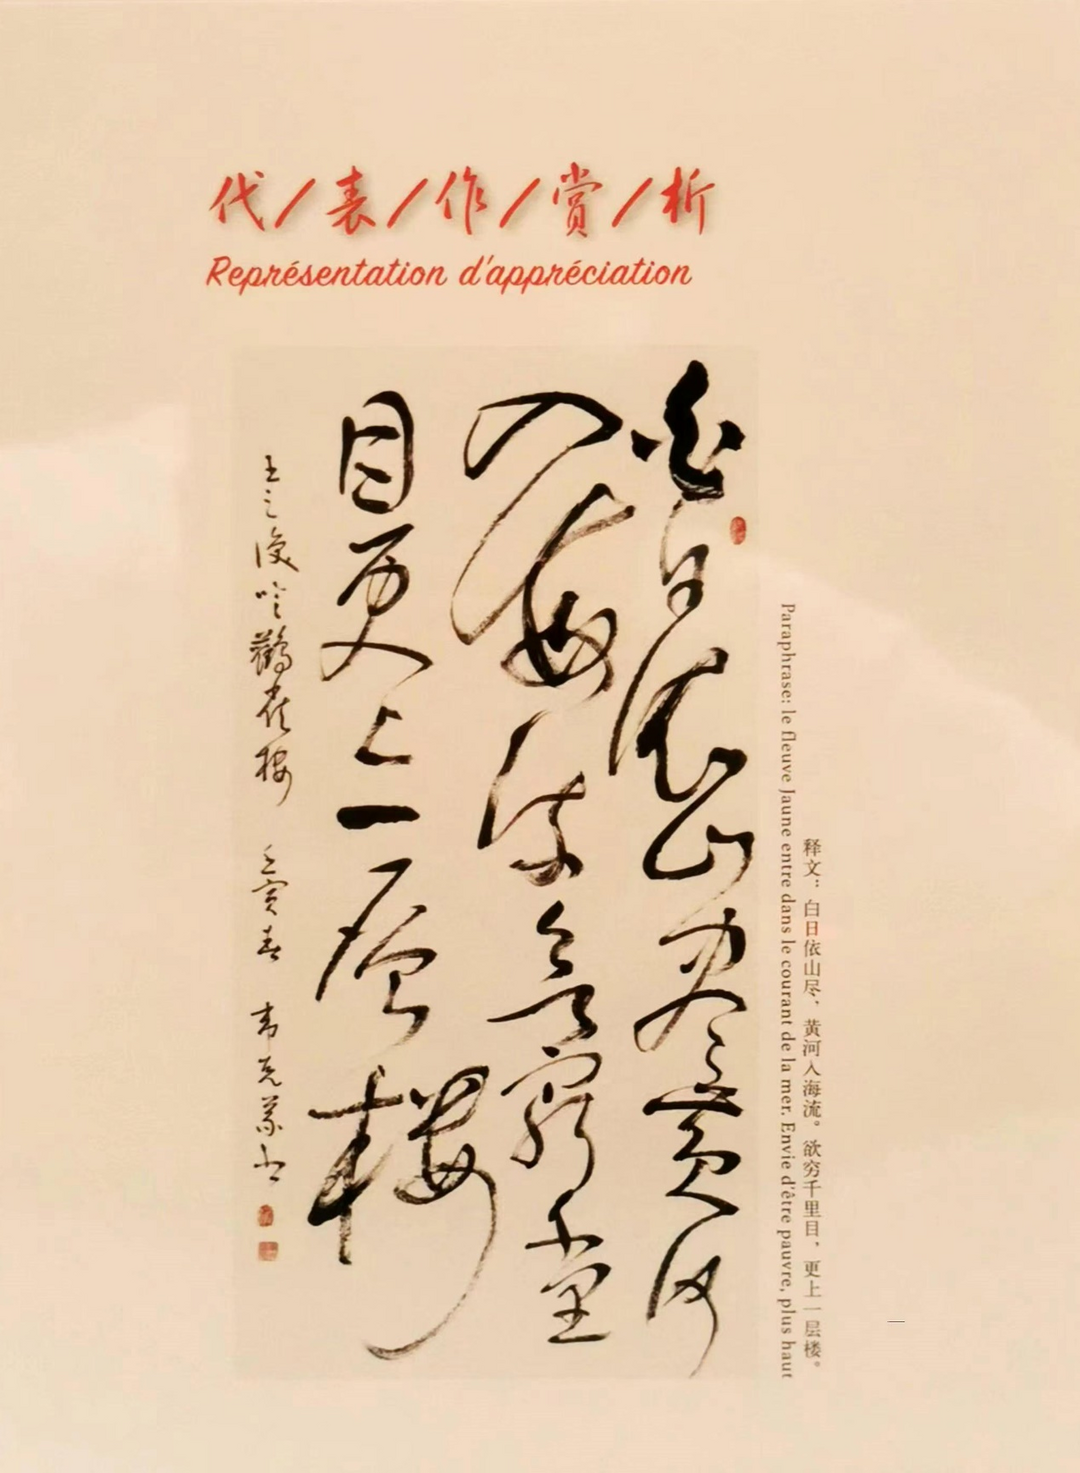 代/表/作/赏/析
Représentation d'appréciation
白日依山尽黄河
入海流欲穷千里
目更上一层楼
王之涣吟鹳雀楼 壬寅春 韦克义书
Paraphrase: le fleuve Jaune entre dans le courant de la mer. Envie d'être pauvre, plus haut
释文：白日依山尽，黄河入海流。欲穷千里目，更上一层楼。